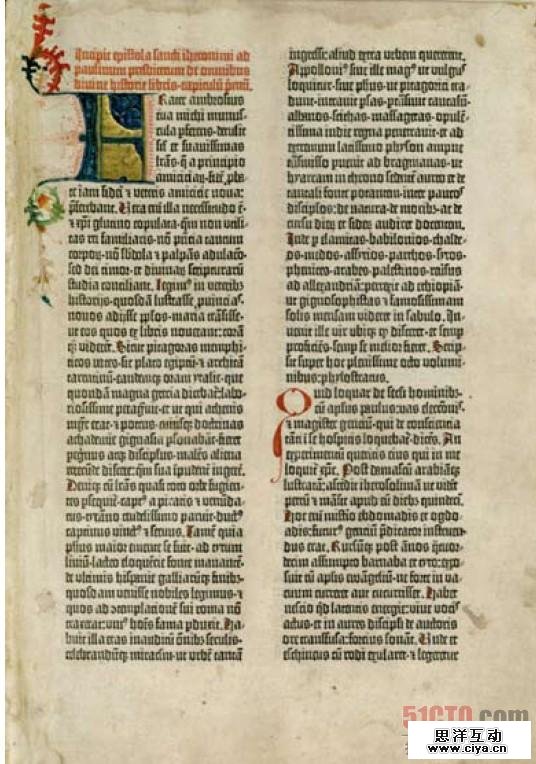 Incipit epistola sancti iheronimi ad
paulinum presbiterum de omnibus
divine historie libris. capitulū
Frater ambrosius
tua michi munus-
cula pferens. detulit
sil et suavissimas
lrās. q̄ a principio
amiciciaȝ.
et iam fidei et veteris amicicie nova:
Vera eni illa necessitudo ē.
et xpi glutino copulata. qm non utili-
tas rei familiaris. nō pn̄cia tantum
corporȝ. nō sbdola et palpās adulacō.
sed dei timor. et divinaȝ scripturarū
studia conciliant. Legimᵒ in veteribȝ
historijs. quosdā lustrasse puīncias.
novos adijsse pplos. maria trāsisse.
ut eos quos ex libris noverant: coram
qȝ viderēt. Sicut pitagoras memphi-
ticos vates. sic plato egiptū. et architā
tarentinū. eandemqȝ oram ytalie. que
quondā magna grecia dicebat̄. labo-
riosissime et ut qui athenis
mgr erat. et potens. cuiusqȝ doctrinas
achademie gignasia psonabāt. fieret
pegrinus atqȝ discipulus. malēs aliena
verecūde discere: qm sua īpudent̄ ingerē.
Deniqȝ cū lrās quasi toto orbe fugien-
tes psequit̄. captᵒ a piratis et venūda-
tus. tyrāno crudelissimo paruit. ductᵒ
captivus vinctᵒ et servus. Tamē quia
phūs maior emente se fuit. ad tytum
liviū. lacteo eloquētie fonte manantē.
de ultimis hispanie galliarūqȝ finibȝ.
quosdam venisse nobiles legimus. et
quos ad sui roma nō
traxerat: unᵒ hoīs fama pduxit. Ha-
buit illa etas inauditū omībȝ seculis.
celebrandūqȝ miraculū. ut urbē tantā
ingressi: aliud extra urbem quererent.
Appollonius sive ille magᵒ ut vulgᵒ
loquitur. sive phūs. ut pitagorici tra-
dunt. intravit psas. ptrāsivit caucasū.
albanos. scithas. massagetas. opulē-
tissima indie regna penetravit. et ad
extremum latissimo physon ampne
trāsmisso puenit ad bragmanas. ut
hyarcam in throno sedētē aureo. et de
tantali fonte potantem. inter paucos
discipulos. de natura. de moribȝ. ac de
cursu dierȝ et siderȝ audiret docentem.
Inde p elamitas. babilonios. chalde-
os. medos. assyrios. parthos. syros.
phenices. arabes. palestinos. reūsus
ad allexandriā: perrexit ad ethiopiā.
ut gignosophistas et famosissimam
solis mensam videret in sabulo. In-
venit ille vir ubiqȝ qȝ disceret: et semp
proficiēs. semp se melior fieret. Scrip-
sit super hoc plenissime octo volumi-
nibus: phylostratus.
Quid loquar de secli hominibȝ.
cū apłus paulus: vas electōīs.
et magister gentiū. qui de conscientia
tāti ī se hospitis loquebat̄. dicēs. An
experimentū queritis eius qui in me
loquit̄ xp̄c. Post damascū arabiāqȝ
lustratā: ascēdit iherosolimā ut vidēt
petrū et māsit apud eū diebȝ quindeci.
Hoc eni misterio ebdomadis et ogdo-
adis: futurᵒ gentiū pdicator instruen-
dus erat. Rursūqȝ post ānos quatuor-
decim assumpto barnaba et tyto: expo-
suit cū apłis ewāgeliū. ne forte in va-
cuum curreret aut cucurrisset. Habet
nescio qd latentis energie: vive vocis
actus. et in aures discipli de auctoris
ore transfusa: fortius sonat. Unde et
eschineus cū rodi exularet. et legeretur
51CTO.com
思洋互动
www.ciya.cn